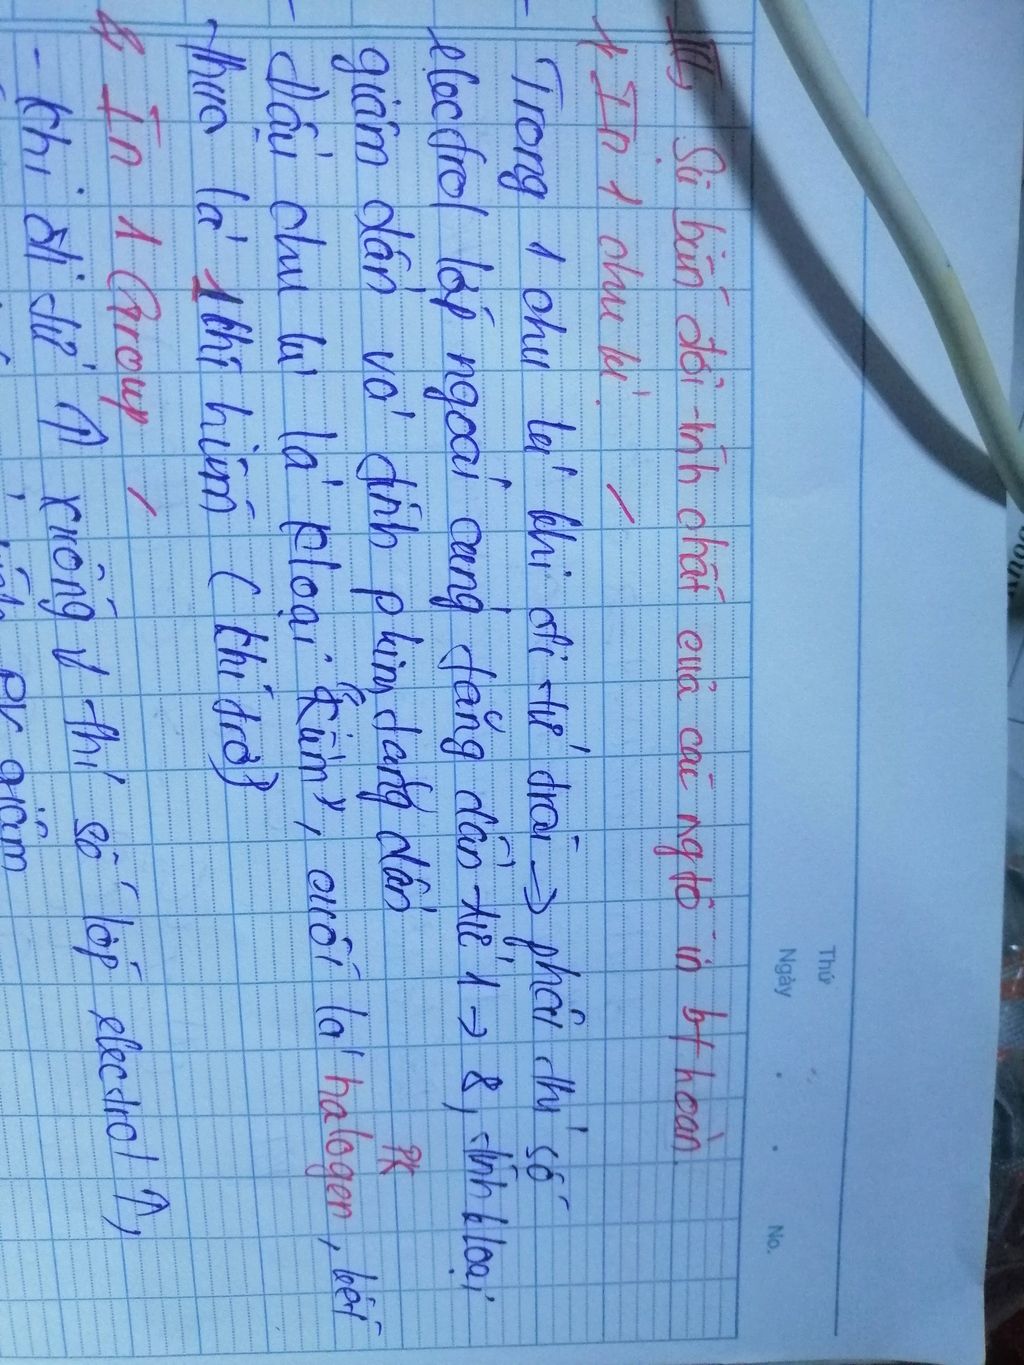 Thứ
Ngày
No.
III, Sự biến đổi tính chất của các ngtố in bt hoàn.
1, In 1 chu kì.
- Trong 1 chu kì khi đi từ trái → phải thì số
electrol lớp ngoài cùng tăng dần từ 1 → 8, tính kloại
giảm dần và tính phim tăng dần
PK
- Đầu chu kì là kloại "kìm", cuối là halogen, kết
thúc là 1 khí hiếm (khí trơ)
2, In 1 Group
- Khi đi từ ↑ xuống ↓ thì số lớp electrol ↑,
giảm